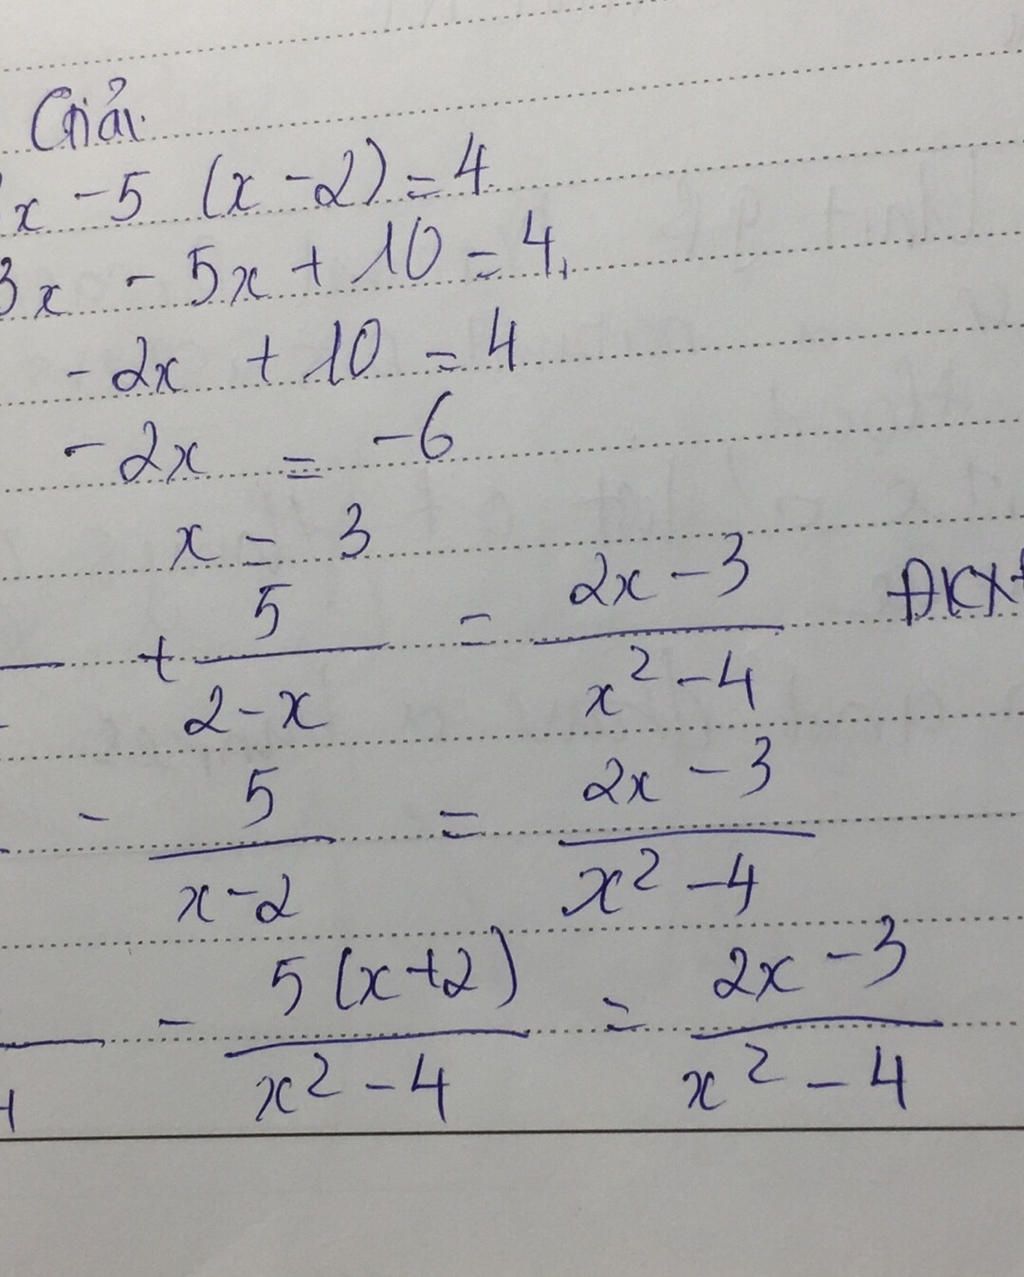 Giải
x - 5 (x - 2) = 4
3x - 5x + 10 = 4
- 2x + 10 = 4
- 2x = -6
x = 3
+ 5/(2 - x) = (2x - 3)/(x² - 4) ĐKX
- 5/(x - 2) = (2x - 3)/(x² - 4)
- 5(x + 2)/(x² - 4) = (2x - 3)/(x² - 4)